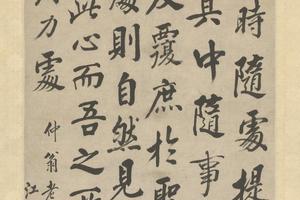 時隨處提
其中隨事
反覆庶於聖
處則自然見
此心而吾之所
用力處
仲翁老
江